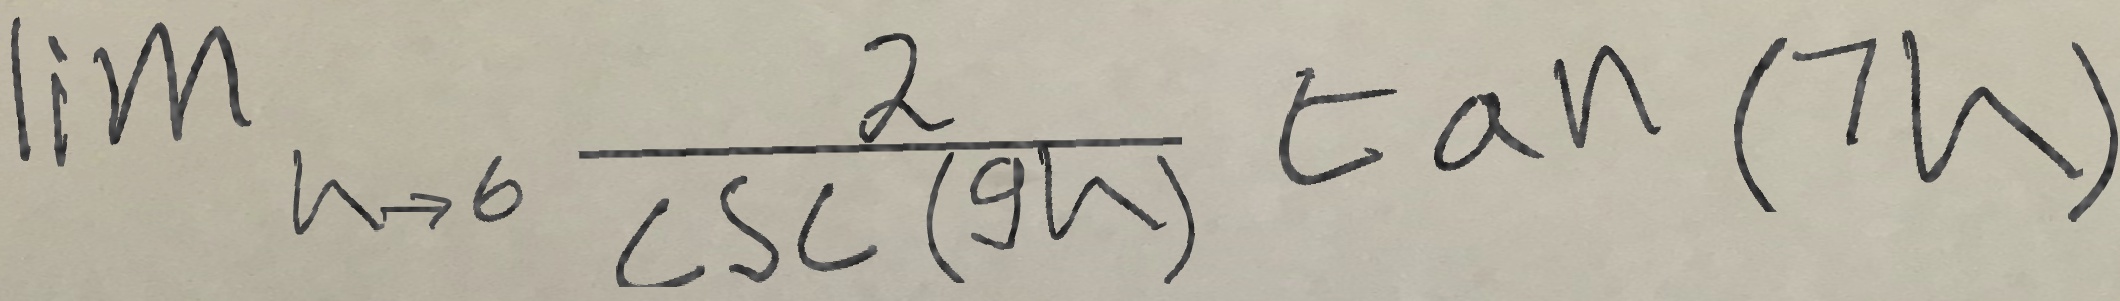 lim_{h→6} \frac{2}{csc(9h)} tan(7h)